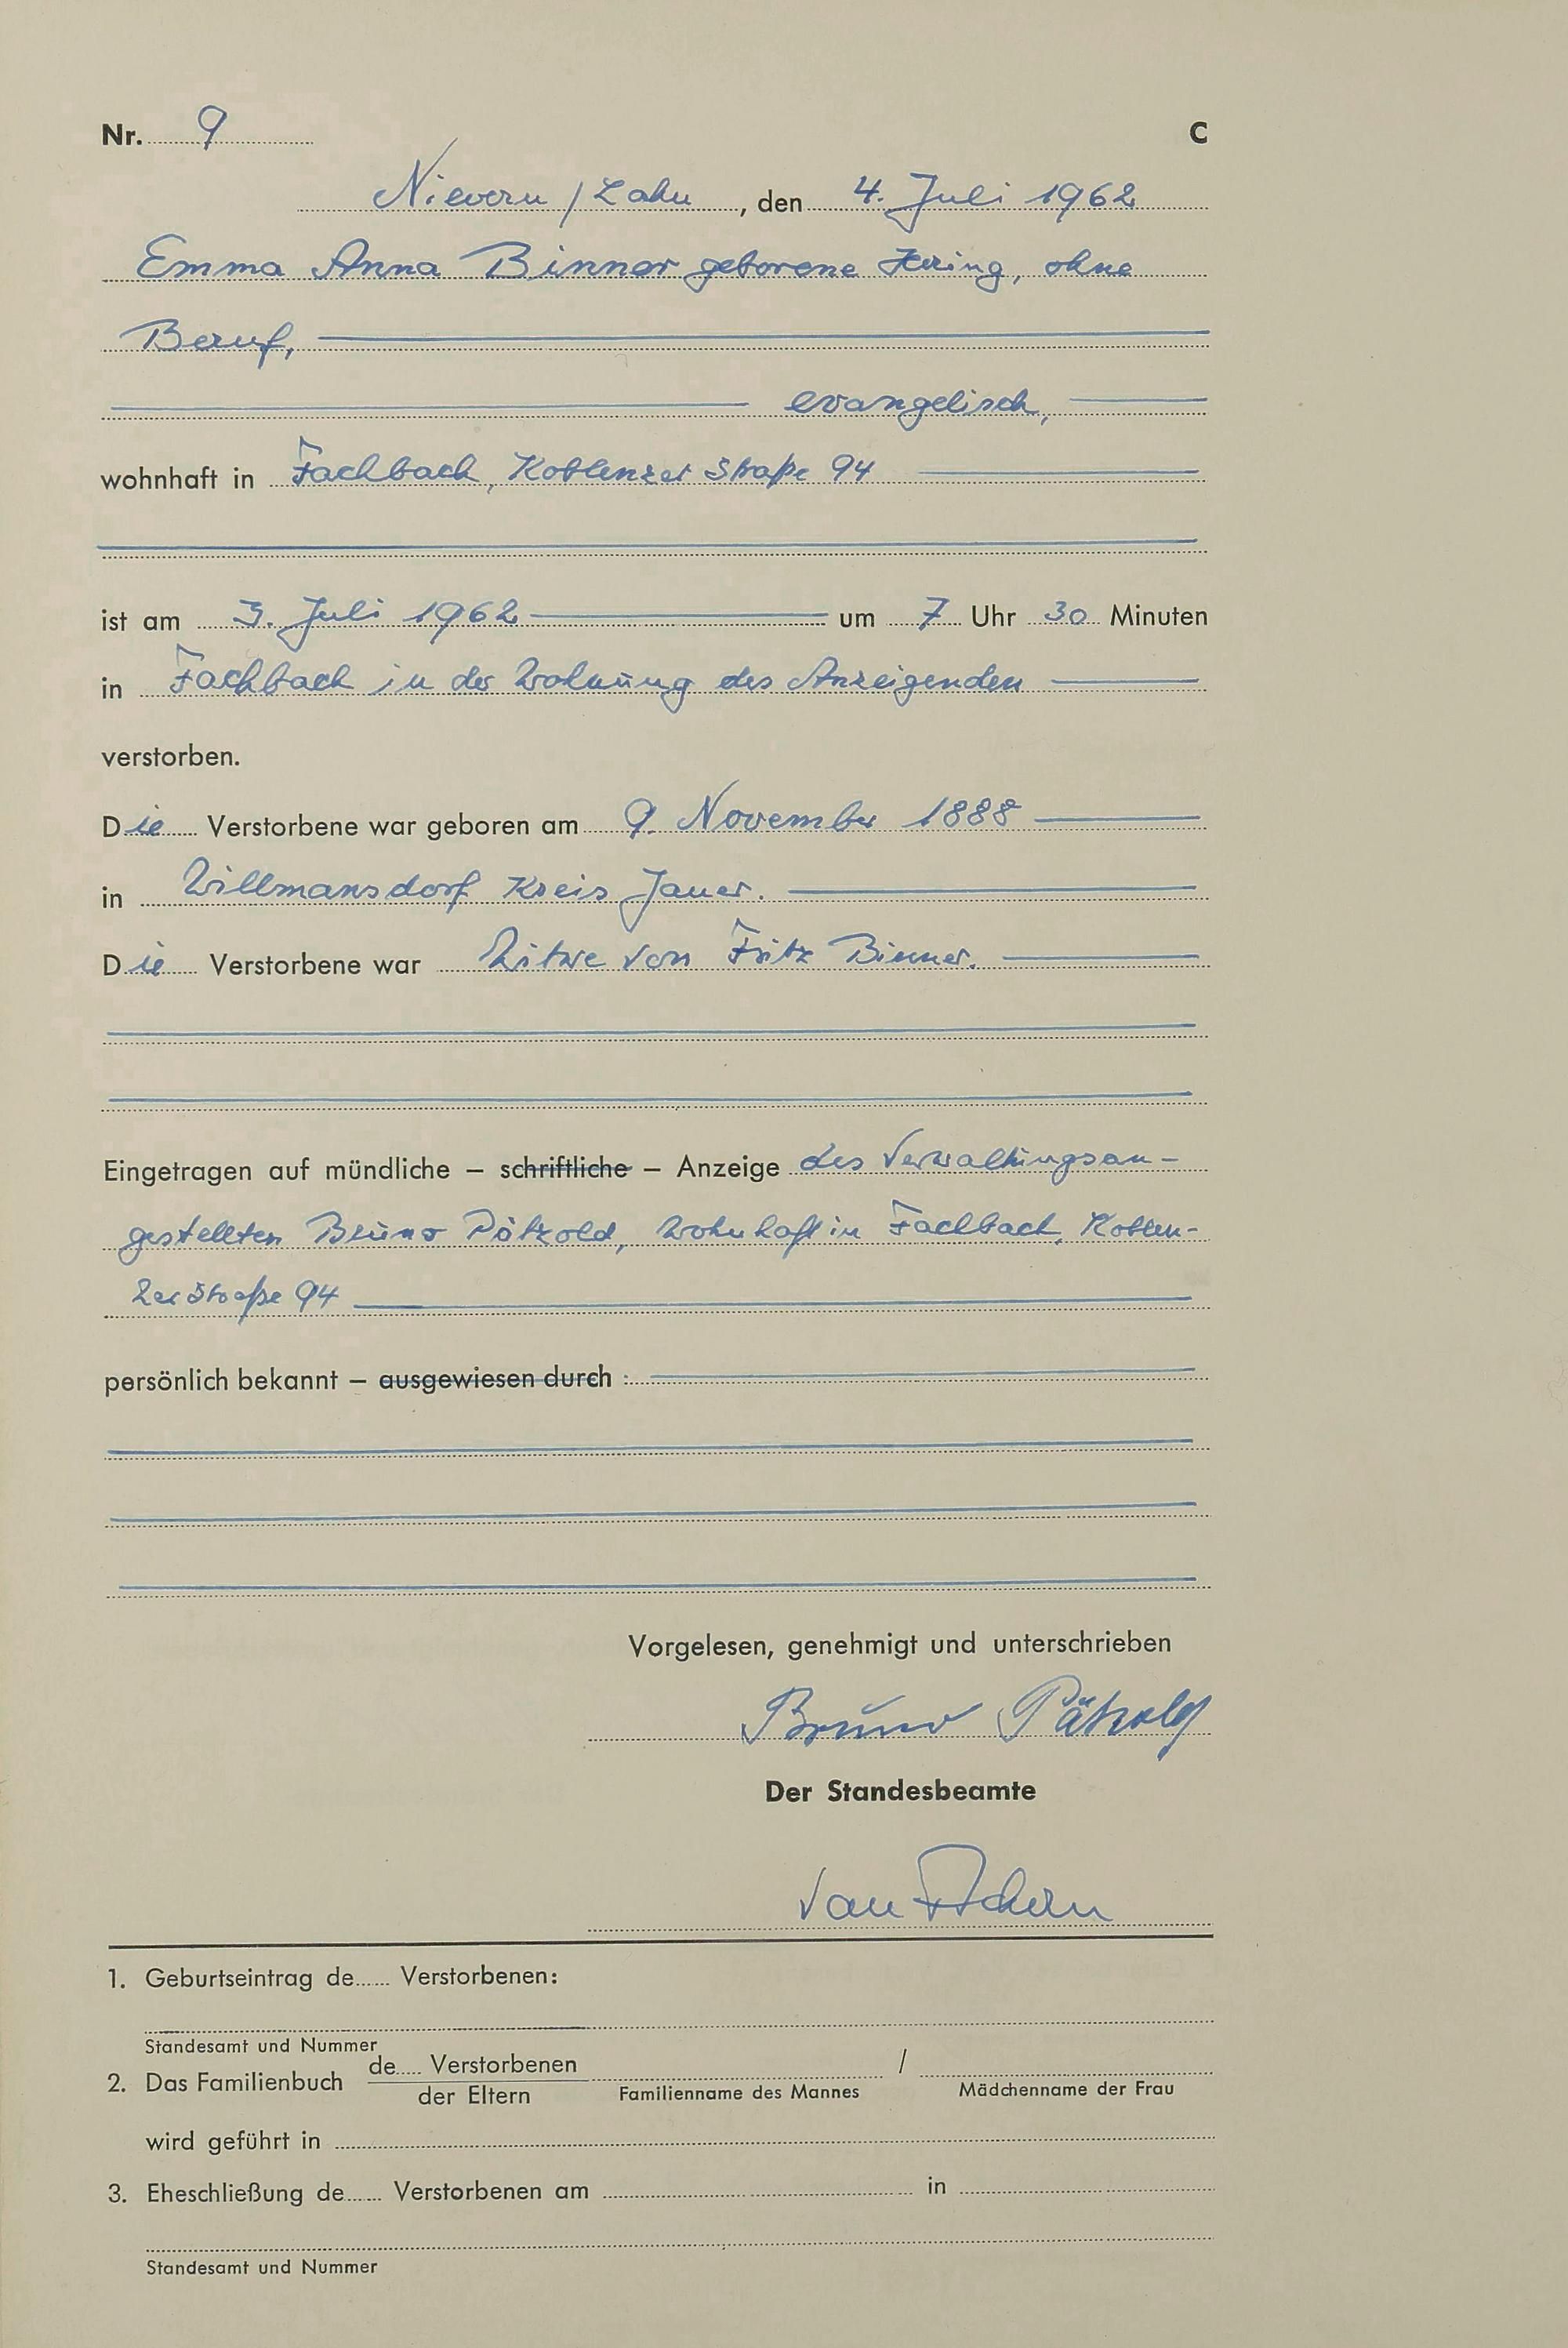 Nr. 9 C
Nievern / Lahn, den 4. Juli 1962
Emma Anna Binner geborene Hering, ohne
Beruf,
evangelisch,
wohnhaft in Fachbach, Koblenzer Straße 94
ist am 3. Juli 1962 um 7 Uhr 30 Minuten
in Fachbach in der Wohnung des Anzeigenden
verstorben.
Die Verstorbene war geboren am 9. November 1888
in Willmansdorf Kreis Jauer.
Die Verstorbene war Witwe von Fritz Binner.
Eingetragen auf mündliche – schriftliche – Anzeige des Verwaltungsan-
gestellten Bruno Pätzold, wohnhaft in Fachbach, Koblen-
zer Straße 94
persönlich bekannt – ausgewiesen durch :
Vorgelesen, genehmigt und unterschrieben
Bruno Pätzold
Der Standesbeamte
van
1. Geburtseintrag de...... Verstorbenen:
Standesamt und Nummer
2. Das Familienbuch de..... Verstorbenen /
der Eltern Familienname des Mannes Mädchenname der Frau
wird geführt in
3. Eheschließung de...... Verstorbenen am in
Standesamt und Nummer